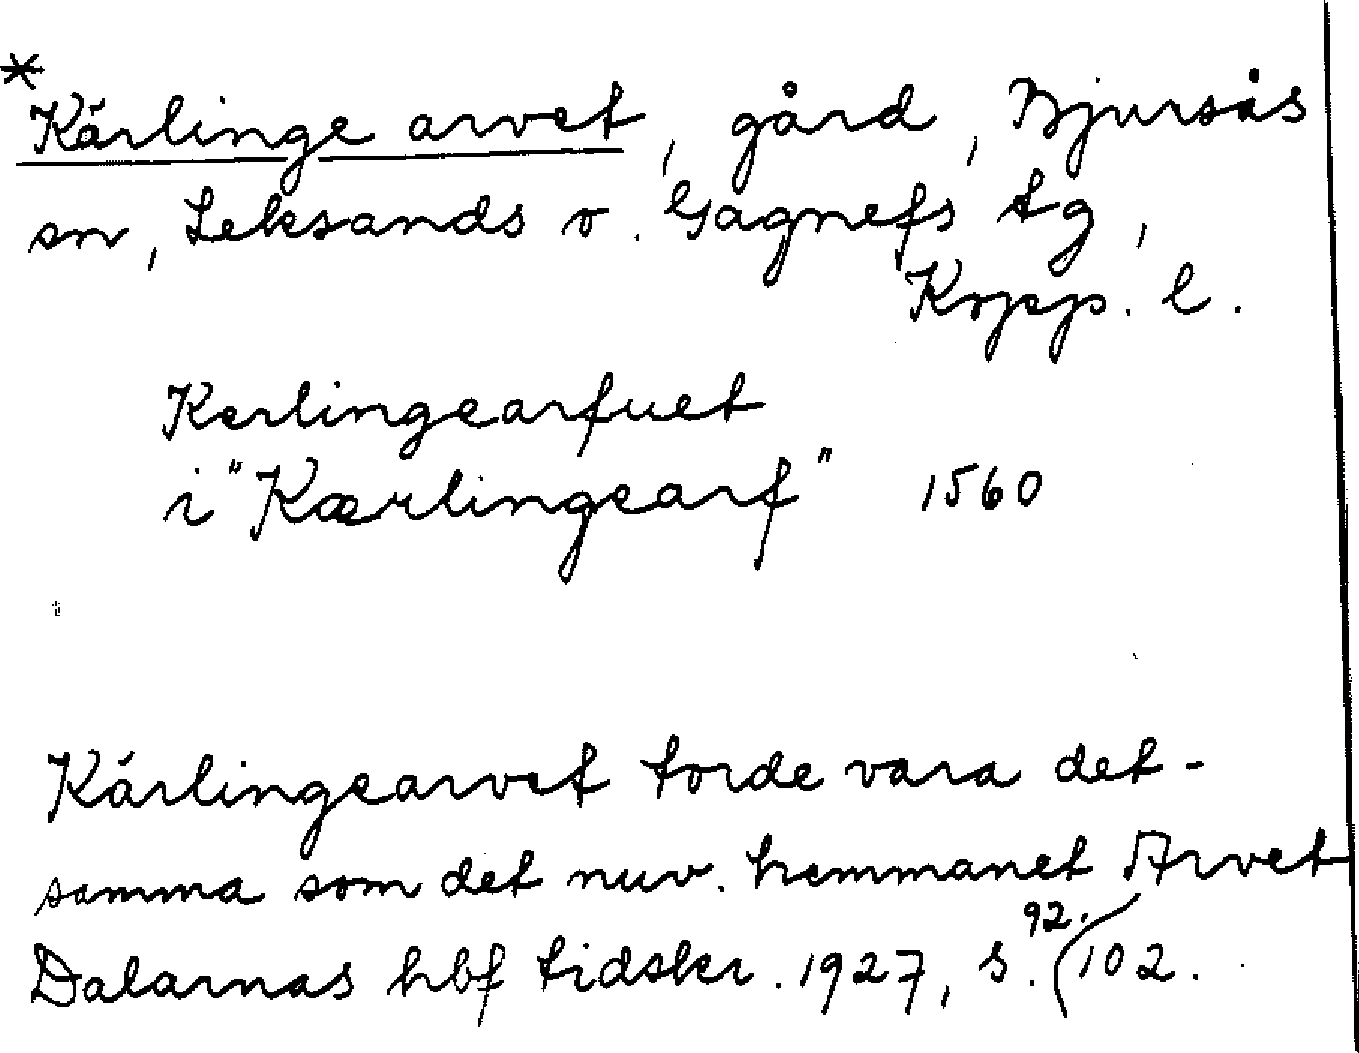 *
Kärlinge arvet, gård, Bjursås
sn, Leksands o. Gagnefs tg,
Kopp. l.
Kerlingearfuet
i "Kærlingearf" 1560
Kärlingearvet torde vara det-
samma som det nuv. hemmanet Arvet
Dalarnas hbf tidskr. 1927, s. 92. (102.